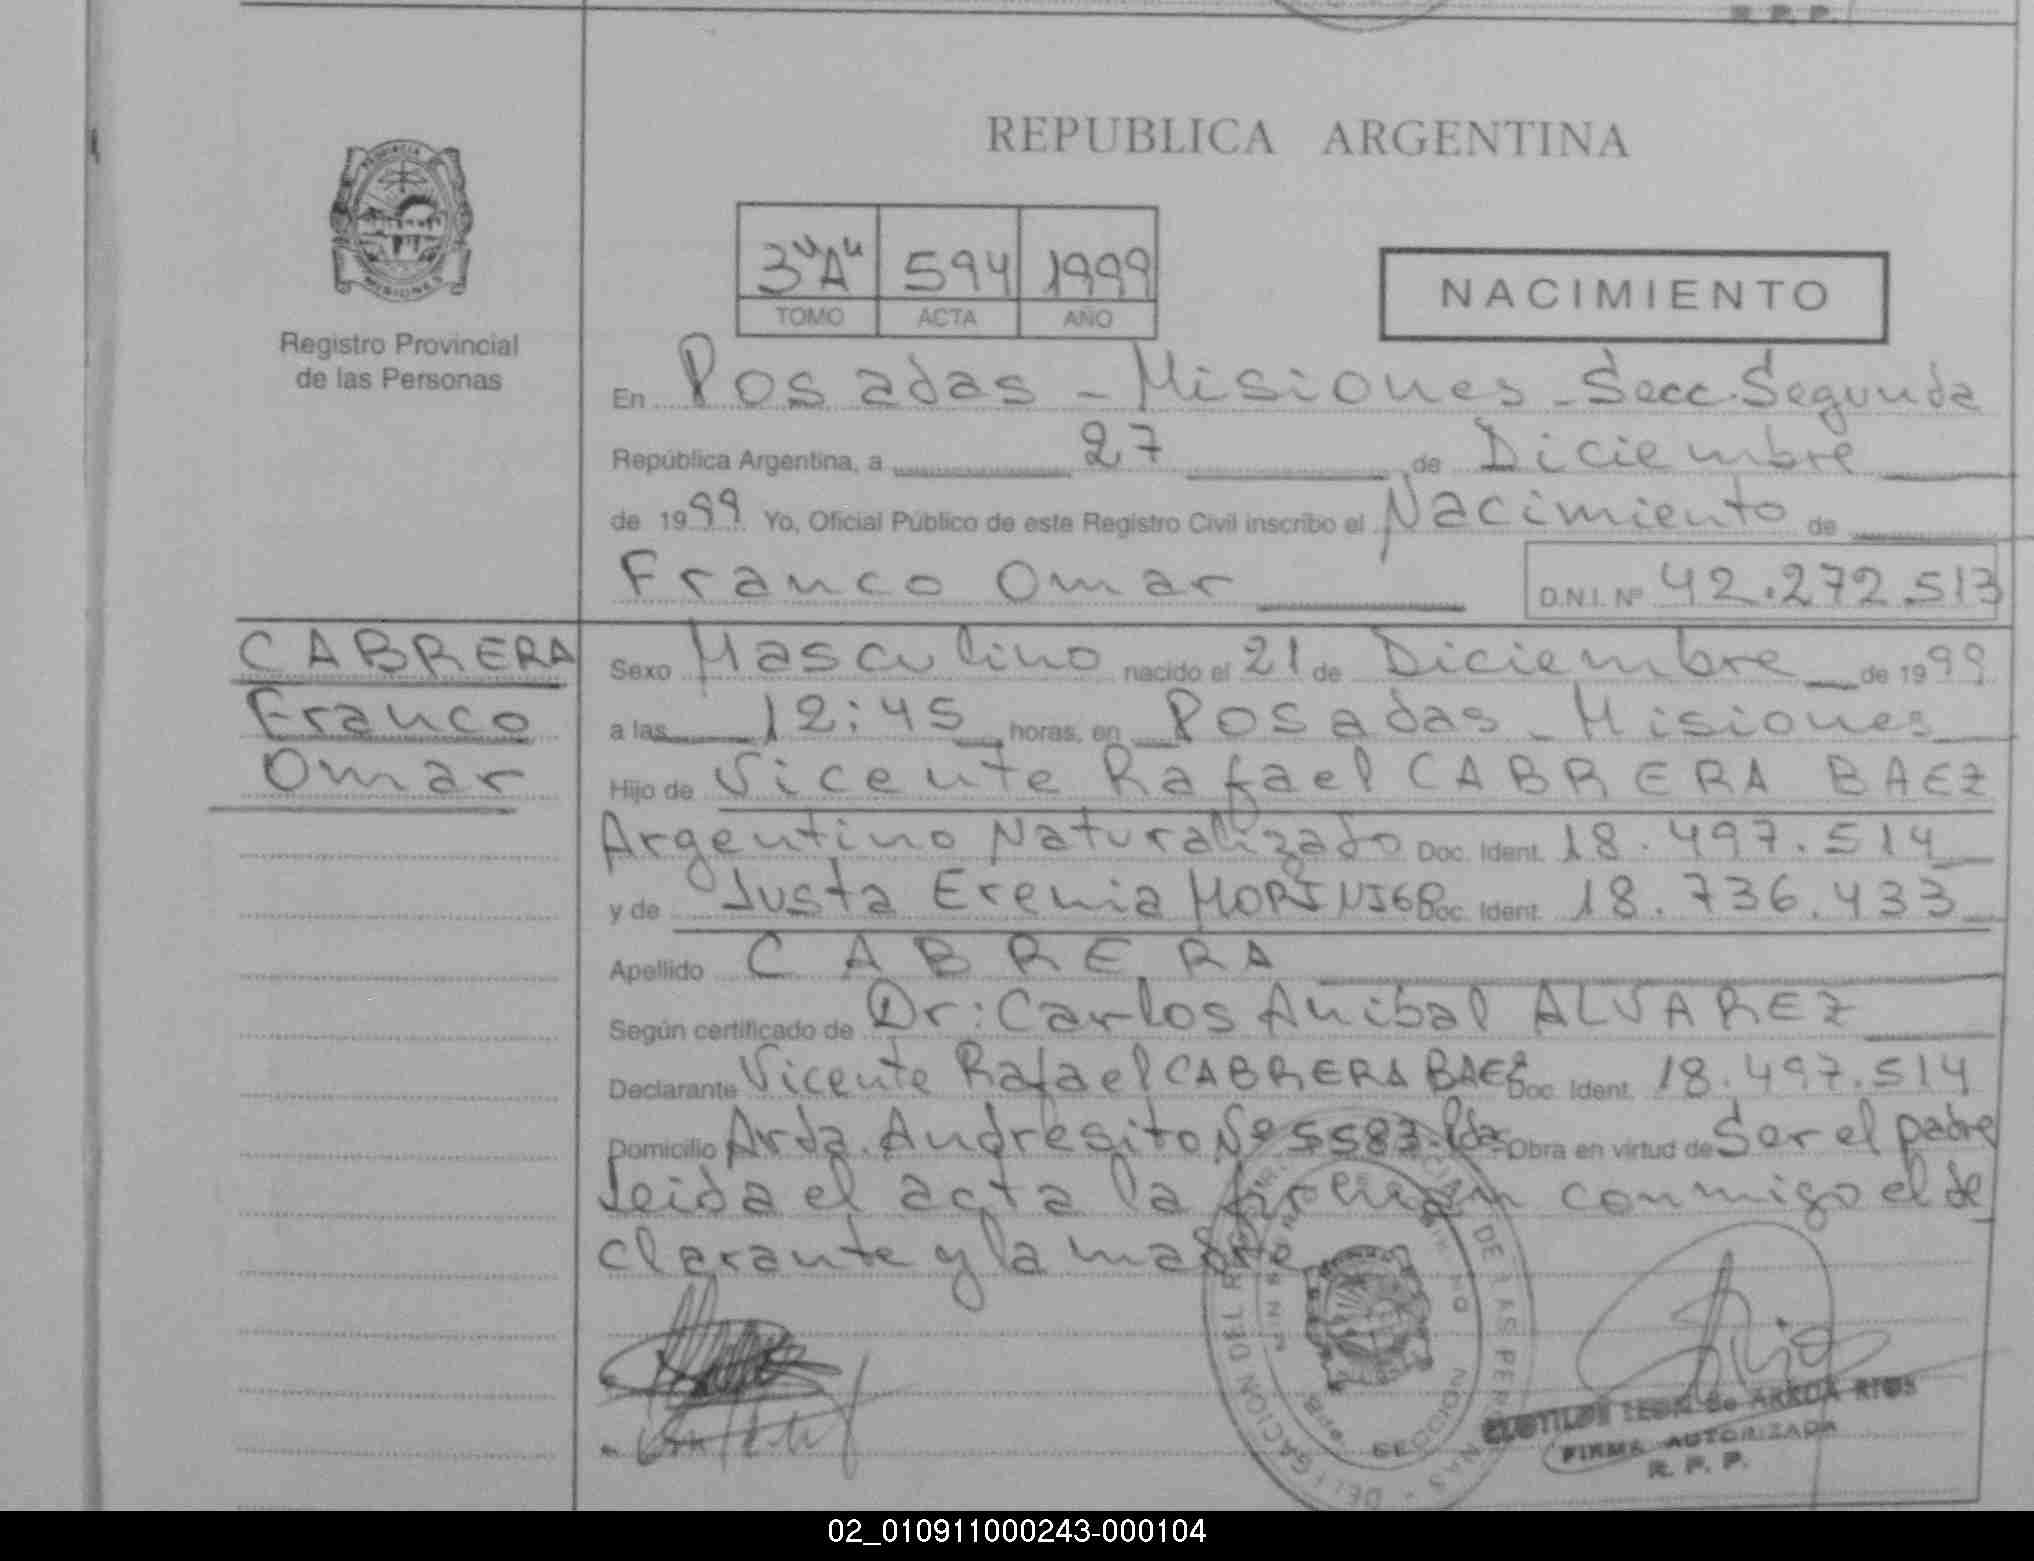 R. P. P.
REPUBLICA ARGENTINA
PROVINCIA
MISIONES
Registro Provincial
de las Personas
3 "A" 594 1999
TOMO ACTA AÑO
NACIMIENTO
En Posadas - Misiones - Secc. Segunda
República Argentina, a 27 de Diciembre
de 1999 Yo, Oficial Público de este Registro Civil inscribo el Nacimiento de
Franco Omar D.N.I. Nº 42.272.513
CABRERA
Franco
Omar
Sexo Masculino nacido el 21 de Diciembre de 1999
a las 12:45 horas, en Posadas - Misiones
Hijo de Vicente Rafael CABRERA BAEZ
Argentino Naturalizado Doc. Ident. 18.497.514
y de Justa Erenia MORINIGO Doc. Ident. 18.736.433
Apellido CABRERA
Según certificado de Dr: Carlos Anibal ALVAREZ
Declarante Vicente Rafael CABRERA BAEZ Doc. Ident. 18.497.514
Domicilio Avda. Andresito Nº 5583 - Pdas Obra en virtud de Ser el padre
Leida el acta la firman conmigo el de
clarante y la madre
DELEGACION DEL REGISTRO PROVINCIAL DE LAS PERSONAS
SECCION
CLOTILDE LEON de ARRUA RIOS
FIRMA AUTORIZADA
R. P. P.
02_010911000243-000104